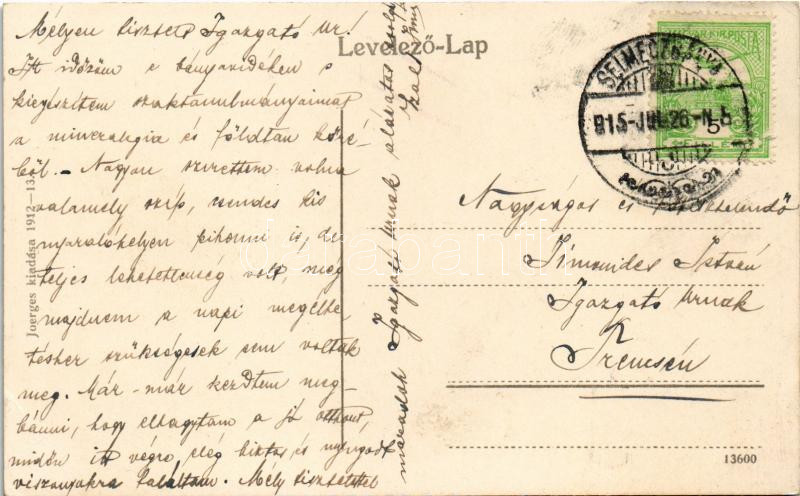 Levelező-Lap
Mélyen tisztelt Igazgató Úr!
Itt időzöm e bányavidéken s
kiegészítem szaktanulmányaimat
a mineralogia és földtan köré-
ből. - Nagyon szerettem volna
valamely szép, rendes kis
nyaralóhelyen pihenni is, de
teljes lehetetlenség volt, még
majdnem a napi megélhe-
téshez szükségesek sem voltak
meg. Már-már kezdtem meg-
bánni, hogy elhagytam a jó otthont,
midőn itt végre elég biztos és nyugodt
viszonyokra találtam. Mély tisztelettel
maradok Igazgató Úrnak alázatos
SELMECZBÁNYA
915-JUL.26.-N.5
MAGYAR KIR. POSTA
5
Nagyságos és
Simonides István
Igazgató Úrnak
Trencsén
Joerges kiadása 1912-13.
13600
darabanth